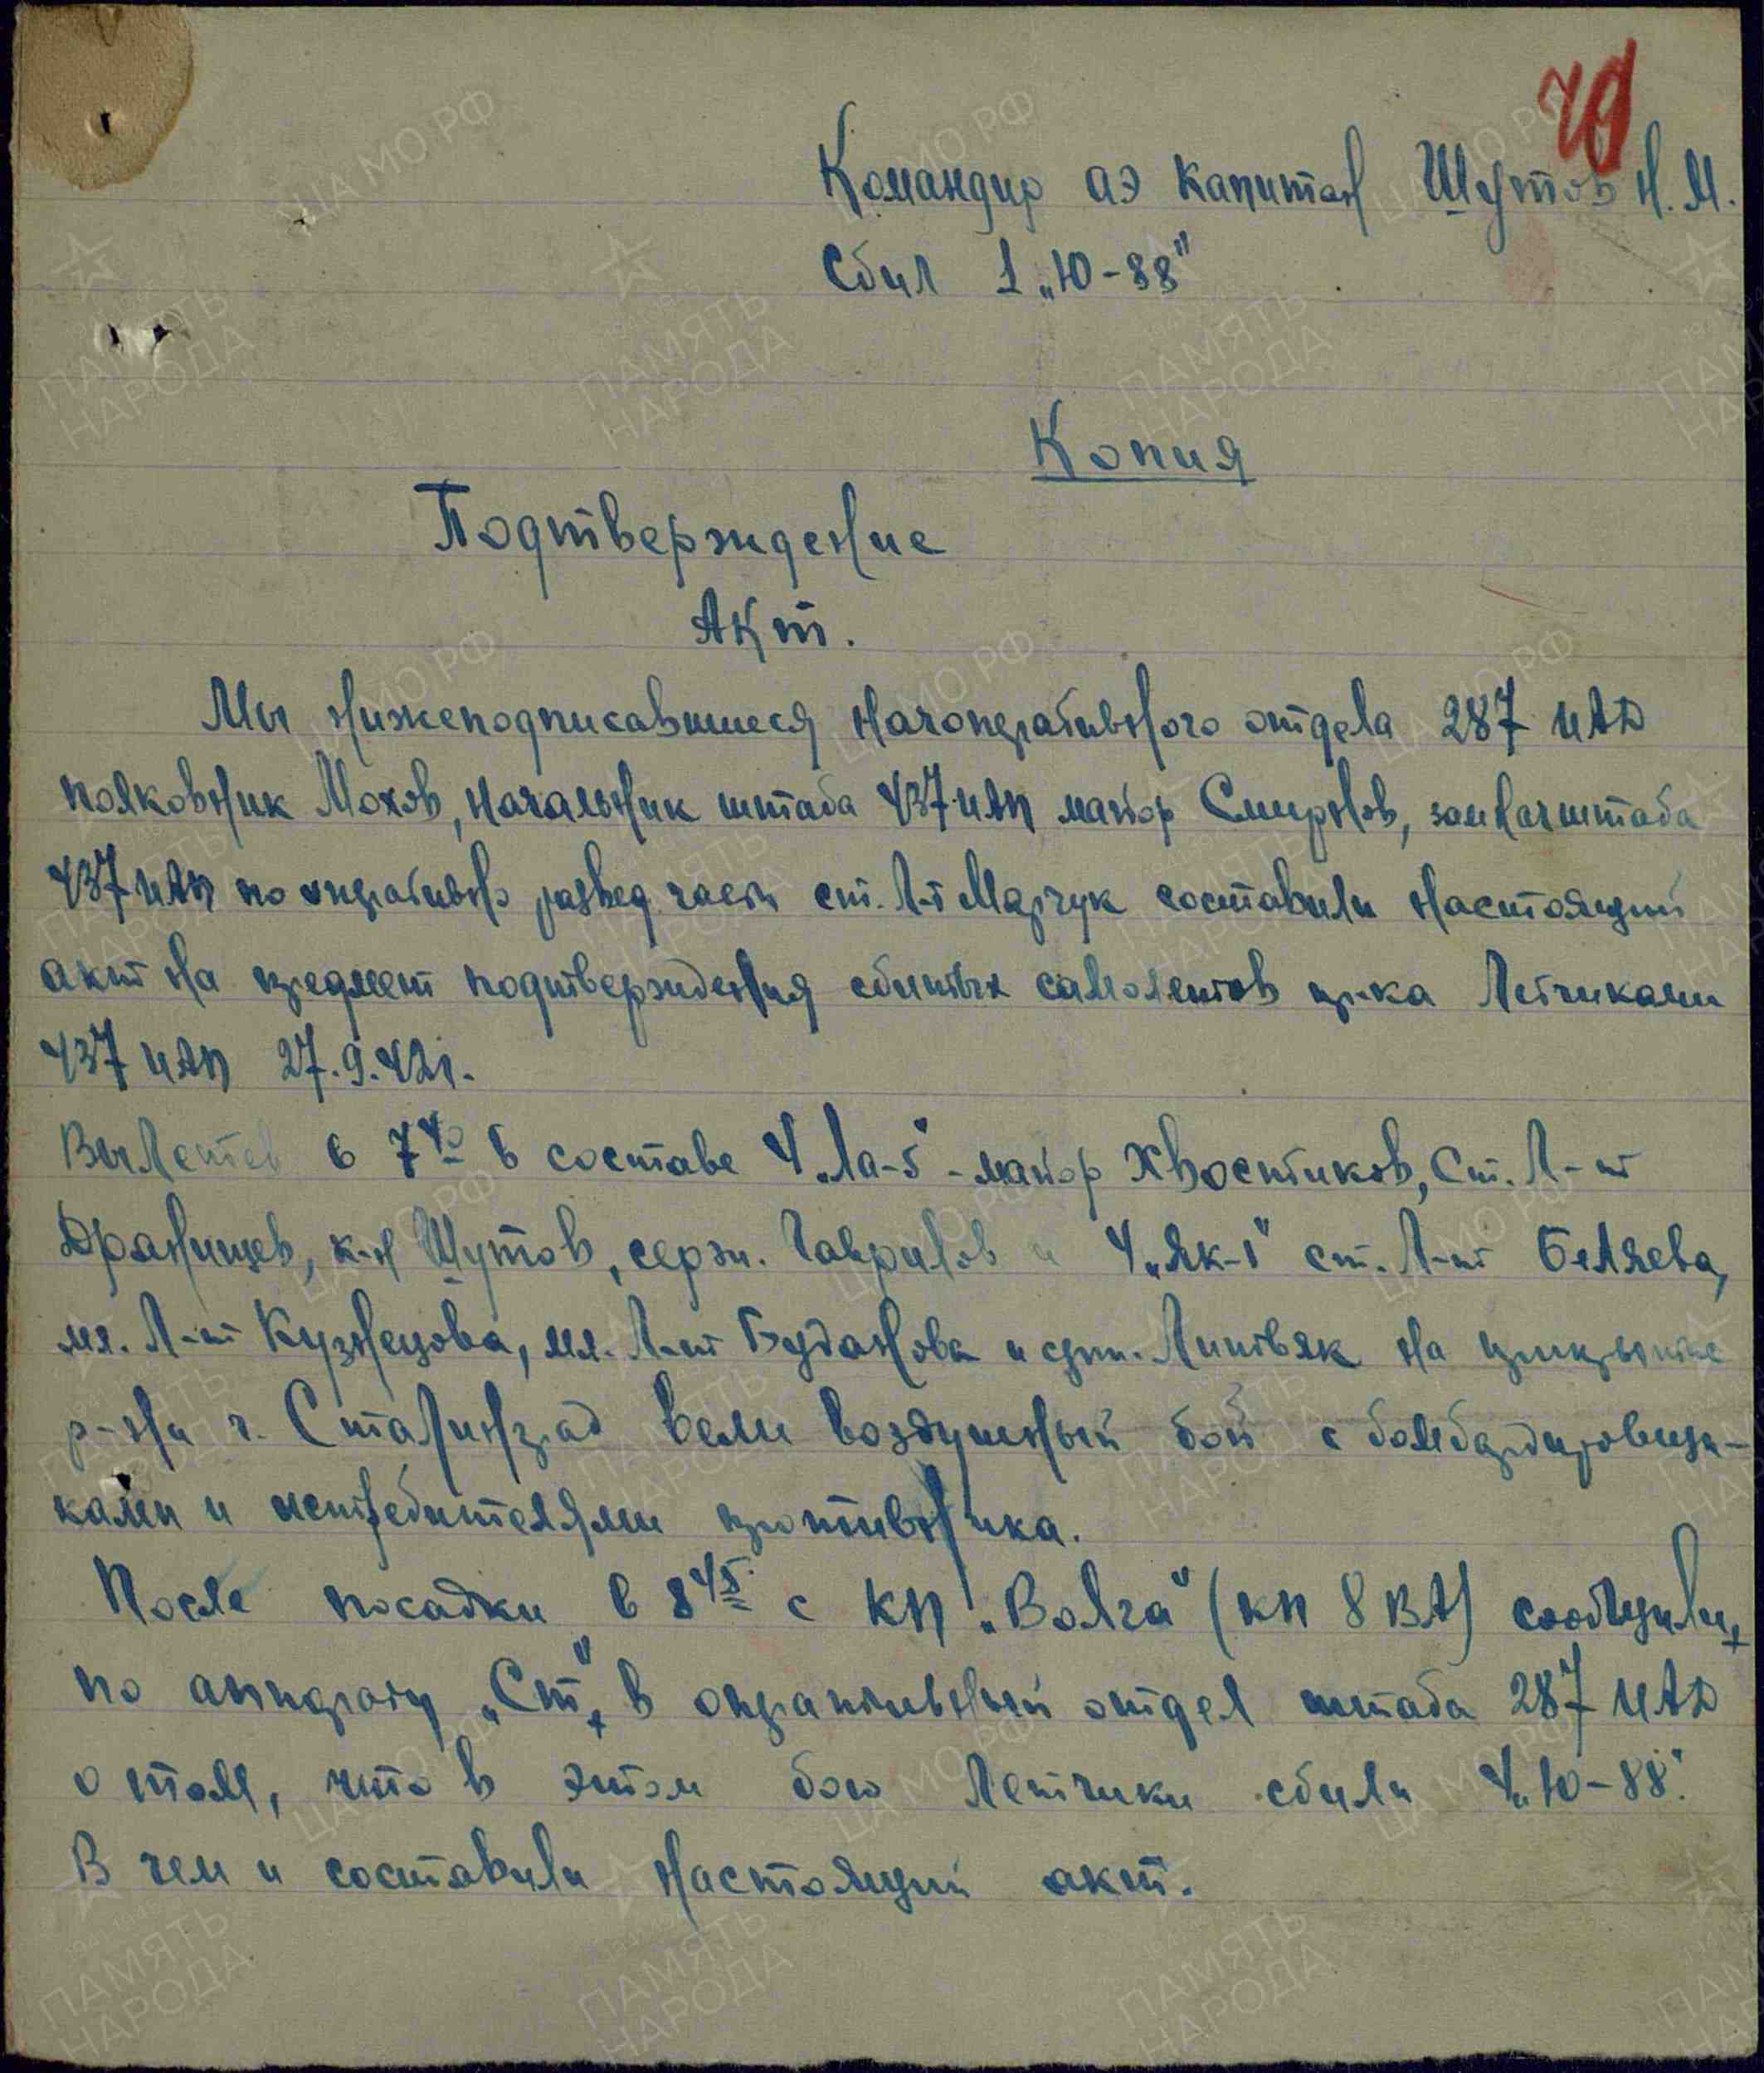 70
Командир аэ капитан Шутов Н.М.
Сбил 1 „Ю-88"
Копия
Подтверждение
Акт.
Мы нижеподписавшиеся начоперативного отдела 287 ИАД
полковник Мохов, начальник штаба 437 ИАП майор Смирнов, замначштаба
437 ИАП по оперативно развед. части ст. л-т Марчук составили настоящий
акт на предмет подтверждения сбитых самолетов пр-ка летчиками
437 ИАП 27.9.42 г.
Вылетев в 7 40 в составе 4 „Ла-5" - майор Хвостиков, ст. л-т
Дранищев, к-н Шутов, серж. Гаврилов и 4 „Як-1" ст. л-т Беляева,
мл. л-т Кузнецова, мл. л-т Буданова и серж. Литвяк на прикрытие
р-на г. Сталинград вели воздушный бой с бомбардировщи-
ками и истребителями противника.
После посадки в 8 45 с КП „Волга" (КП 8 ВА) сообщили,
по аппарату „Ст", в оперативный отдел штаба 287 ИАД
о том, что в этом бою летчики сбили 4 „Ю-88".
В чем и составили настоящий акт.
ЦА МО РФ
ПАМЯТЬ НАРОДА